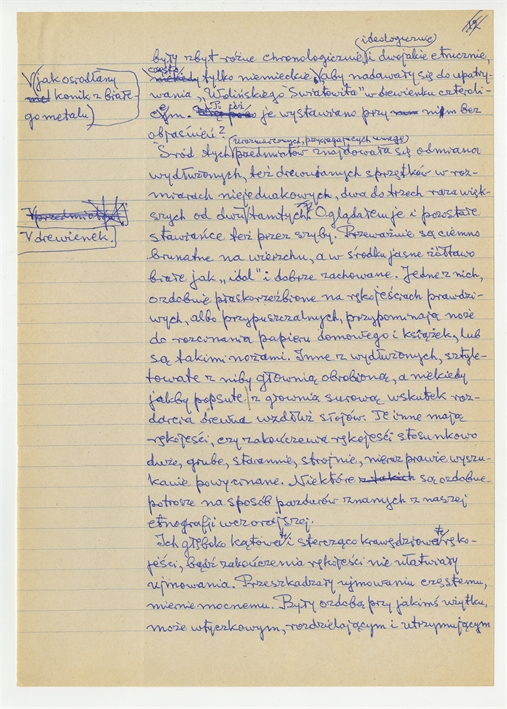 19.
ideologicznie
były zbyt różne chronologicznie, i dwojakie etnicznie,
często
tylko niemieckie, V aby nadawały się do upatry-
wania „Wolińskiego Światowita" w drewienku czteroli-
cym. Tu też je wystawiano przy nim bez
objaśnień?
V (jak ostrosłany
konik z białe-
go metalu)
wzorzystych, przyciągających uwagę
Śród tych przedmiotów znajdowała się odmiana
wydłużonych, też drewnianych sprzętków w roz-
miarach niejednakowych, dwa do trzech razy więk-
szych od dwu tamtych. V Oglądałem je i pozostałe
V drewienek.
stawiańce też przez szyby. Przeważnie są ciemno
brunatne na wierzchu, a w środku jasne żółtawo
białe jak „idol" i dobrze zachowane. Jedne z nich,
ozdobnie płaskorzeźbione na rękojeściach prawdzi-
wych, albo przypuszczalnych, przypominają noże
do rozcinania papieru domowego i książek, lub
są takimi nożami. Inne z wydłużonych, sztyle-
towate z niby głownią obrobioną, a niekiedy
jakby popsute z głownią surową wskutek roz-
darcia drewna wzdłuż słojów. Te inne mają
rękojeści, czy zakończenia rękojeści stosunkowo
duże, grube, starannie, strojnie, nieraz prawie wyszu-
kanie powycinane. Niektóre z takich są ozdobne
potrosze na sposób pazdurów znanych z naszej
etnografji wczorajszej.
Ich głęboko kątowate i stercząco krawędziowate ręko-
jeści, bądź zakończenia rękojeści nie ułatwiały
ujmowania. Przeszkadzały ujmowaniu częstemu,
mniemocnemu. Były ozdobą przy jakimś użytku,
może wtyczkowym, rozdzielającym i utrzymującym